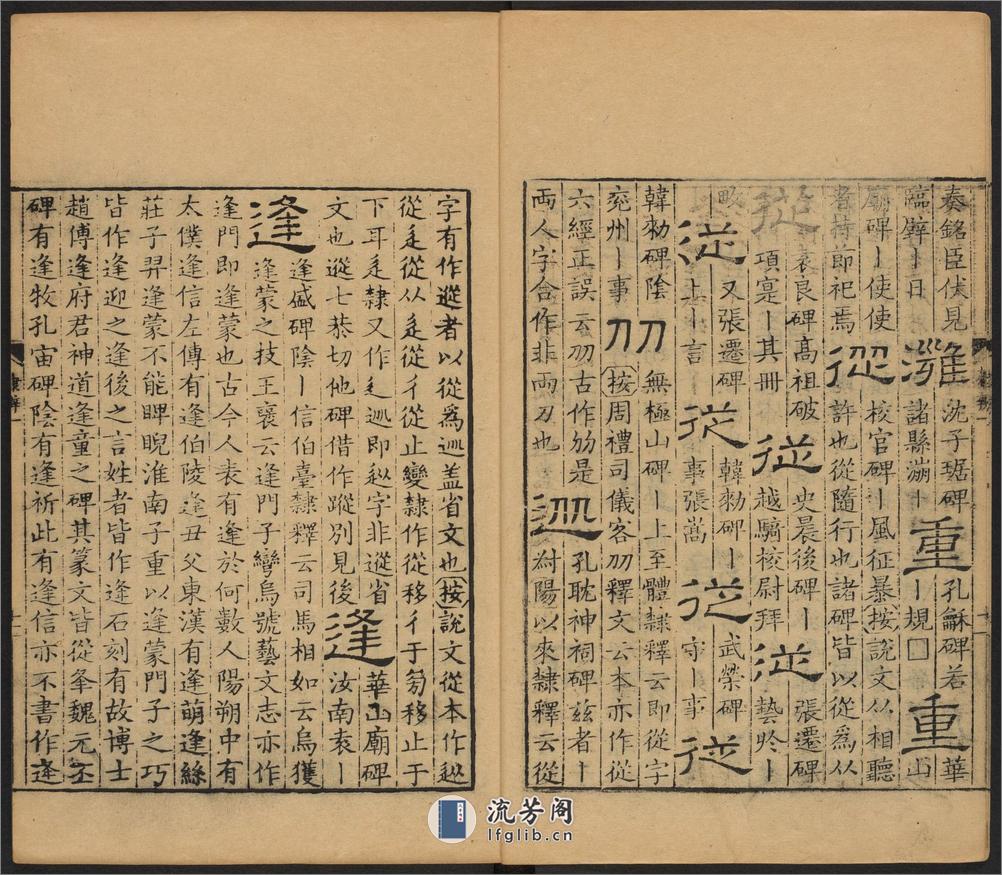 秦銘臣伏見灉沈子琚碑重孔龢碑若重華
臨辟｜日諸縣灉｜｜規□山
廟碑｜使使從校官碑｜風征暴按說文从相聽
者持節祀焉許也從隨行也諸碑皆以從爲从
從袁良碑高祖破從史晨後碑｜從張遷碑
項寔｜其冊越騎校尉拜藝於｜
畋｜又張遷碑從韓勑碑｜從武榮碑從
從｜上｜言事張嵩守｜事
韓勑碑陰刅無極山碑｜上至體隸釋云即從字
兗州｜事按周禮司儀客刅釋文云本亦作從
六經正誤云刅古作㔟是孔耽神祠碑兹者｜
兩人字合作非兩刀也尌陽以來隸釋云從
字有作遊者以從爲巡蓋省文也按說文從本作䢐
從辵從从辵從彳從止變隸作從移彳于旁移止于
下耳辵隸又作辶巡即䢐字非蹤省
文也蹤七恭切他碑借作蹤別見後逢華山廟碑
逢逢盛碑陰｜信伯臺隸釋云司馬相如云烏獲汝南袁｜
逢蒙之技王襃云逢門子彎烏號藝文志亦作
逢門即逢蒙也古今人表有逢於何數人陽朔中有
太僕逢信左傳有逢伯陵逢丑父東漢有逢萌逢絲
莊子羿逢蒙不能睥睨淮南子重以逢蒙門子之巧
皆作逢迎之逢後之言姓者皆作逄石刻有故博士
趙傅逢府君神道逢童之碑其篆文皆從夆魏元丕
碑有逢牧孔宙碑陰有逢祈此有逢信亦不書作逄
流芳阁
lfglib.cn